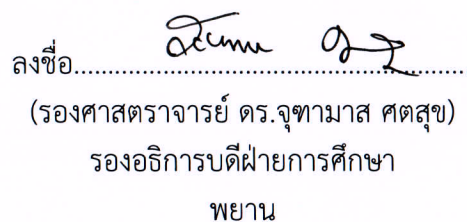 ลงชื่อ.......................................................
(รองศาสตราจารย์ ดร.จุฑามาส ศตสุข)
รองอธิการบดีฝ่ายการศึกษา
พยาน